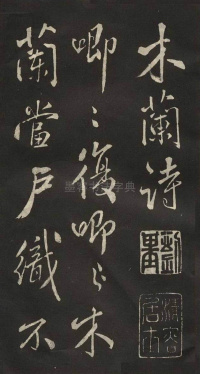 木蘭詩
唧〻復唧〻木
蘭當戶織不